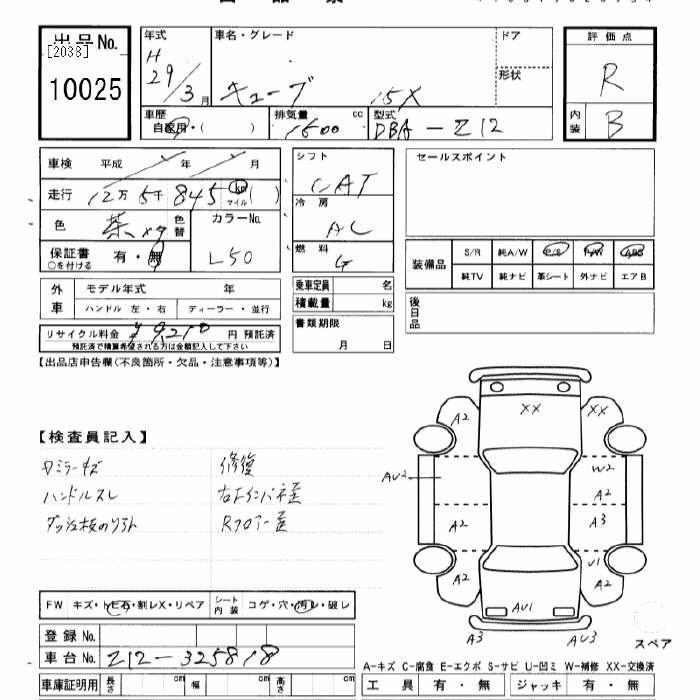 出品No.
[2038]
10025
年式
H
29/3 月
車名・グレード
キューブ 15X
ドア
形状
車歴
自家用・( )
排気量 cc
1500
型式
DBA-Z12
評価点
R
内装
B
車検 平成 年 月
走行 12万 5千 845 km マイル ( )
色 茶 色替
カラーNo.
L50
保証書 有・無
○を付ける
外車
モデル年式 年
ハンドル 左・右 ディーラー・並行
リサイクル料金 ¥9,210 円 預託済
預託済で積算希望される方は金額記入して下さい
シフト
CAT
冷房
AC
燃料
G
乗車定員 名
積載量 kg
書類期限
月 日
セールスポイント
装備品
S/R 純A/W P/S P/W ABS
純TV 純ナビ 革シート 外ナビ エアB
後日品
【出品店申告欄(不良箇所・欠品・注意事項等)】
【検査員記入】
ハンドルスレ
修復
XX
XX
A2
AU2
W2
A2
A2
A3
U1
A2
A2
AU1
A3
AU3
スペア
FW キズ・トビ石・割レX・リペア
シート内装 コゲ・穴・汚レ・破レ
登録 No.
車台 No. Z12-325818
車庫証明用 長さ cm 幅 cm 高さ cm
A-キズ C-腐食 E-エクボ S-サビ U-凹ミ W-補修 XX-交換済
工具 有・無 ジャッキ 有・無